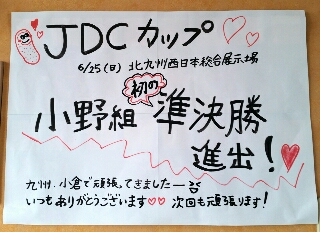 JDCカップ
6/25(日) 北九州西日本総合展示場
初の
小野組 準決勝
進出!
九州、小倉で頑張ってきましたー
いつもありがとうございます♡♡ 次回も頑張ります!